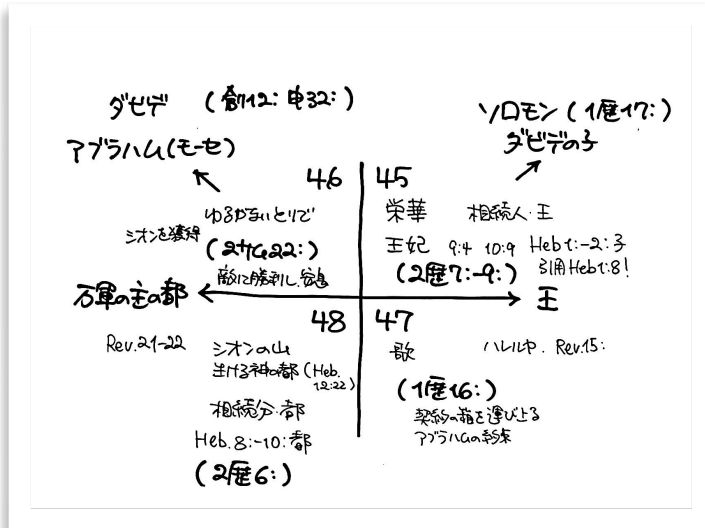 ダビデ (創12: 申32:)
アブラハム(モーセ)
ソロモン (1歴17:)
ダビデの子
46
45
ゆるがないとりで
シオンを獲得
(2サム22:)
敵に勝利し、安息
栄華 相続人・王
王妃 9:4 10:9 Heb1:-2:子
(2歴7:-9:) 引用Heb1:8!
万軍の主の都
王
48
47
Rev.21-22
シオンの山
生ける神の都 (Heb.
12:22)
相続分・都
Heb.8:-10:都
(2歴6:)
歌 ハレルヤ. Rev.15:
(1歴16:)
契約の箱を運び上る
アブラハムの約束